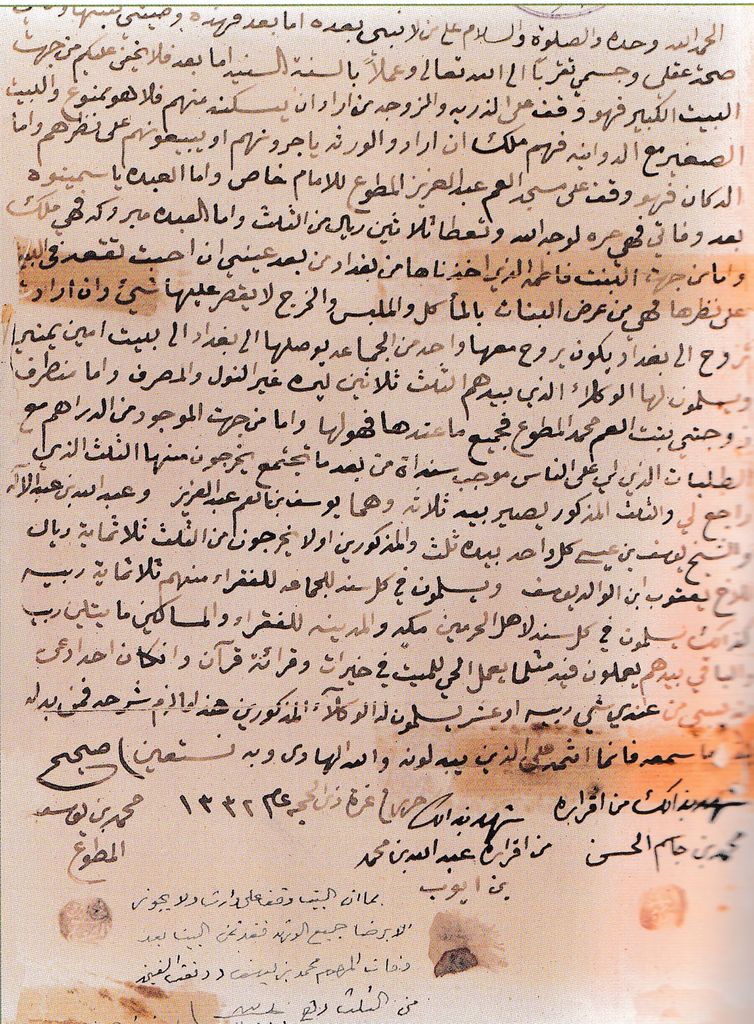 الحمد لله وحده والصلوة والسلام على من لا نبي بعده اما بعد فهذه وصيتي
صحة عقلي وجسمي تقرباً الى الله تعالى وعملاً بالسنة السنيه اما بعد فلا يخفى عليكم من جهت
البيت الكبير فهو وقف على الذريه والزوجه من اراد ان يسكنه منهم فلا هو ممنوع والبيت
الصغير مع الدوانيه فهم ملك ان ارادو الورثه ياجرونهم او يبيعونهم على نظرهم واما
الدكان فهو وقف على مسجد العم عبد العزيز المطوع للامام خاص واما العبده ياسمينوه
بعد وفاتي فهي حره لوجه الله وتعطا ثلاثين ريال من الثلث واما العبده مبروكه فهي ملك
واما من جهت البنت فاطمه الذي اخذناها من بغداد من بعد عيني ان احبت تقعد في البيت
على نظرها فهي من عرض البنات بالمأكل والملبس والخرج لا يقصر عليها شيئ وان ارادت
تروح الى بغداد يكون يروح معها واحد من الجماعه يوصلها الى بغداد الى بيت امين يمني
ويسلمون لها الوكلاء الذي بيدهم الثلث ثلاثين ليره غير النول والمصرف واما من طرف
زوجتي بنت العم محمد المطوع فجميع ما عندها فهو لها واما من جهت الموجود من الدراهم مع
الطلبات الذي لي على الناس موجب سنداة من بعد ما تجتمع يخرجون منها الثلث الذي
راجع لي والثلث المذكور يصير بيد ثلاثه وهما يوسف بن العم عبد العزيز وعبد الله بن عبد الاله
والشيخ يوسف بن عيسى كل واحد بيده ثلث والمذكورين اولا يخرجون من الثلث ثلاثماية ريال
يعقوب ابن الوالد يوسف ويسلمون في كل سنه للجماعه للفقراء منهم ثلاثماية ربيه
كذالك يسلمون في كل سنه لاهل الحرمين مكه والمدينه للفقراء والمساكين مايتين ربيه
والباقي بيدهم يعملون فيه مثلما يعمل الحي للميت في خيرات وقرائة قرآن وانكان احد ادعى
من عندي شي ربيه او عشر يسلمون له الوكلاء المذكورين هذا ما لزم شرحه فمن بدله
ما سمعه فانما اثمه على الذين يبدلونه والله الهادي وبه نستعين صحيح
شهد بذالك من اقراره
محمد بن جاسم الحسن
شهد بذالك
من اقراره عبد الله بن محمد
بن ايوب
غرة ذي الحجه عام ١٣٣٢
محمد بن يوسف
المطوع
بما ان البيت وقف على وارث ولا يجوز
الا برضا جميع الورثه فقد البيت بعد
وفات المرحوم محمد بن يوسف
من الثلث